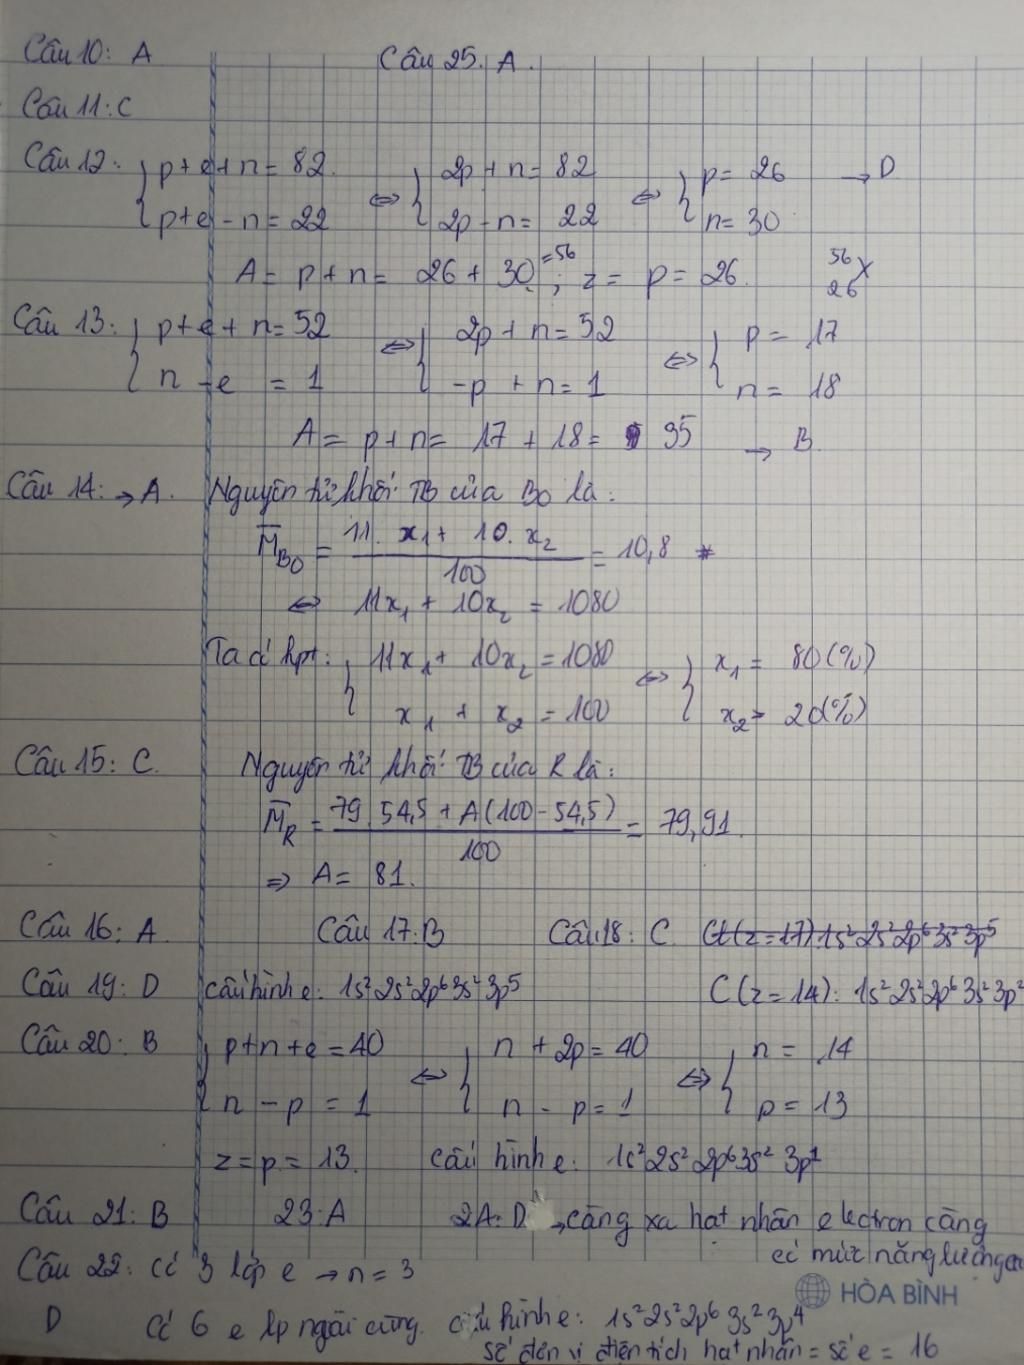 Câu 10: A Câu 25. A.
Câu 11: C
Câu 12: { p+e+n=82 ⇔ { 2p+n=82 ⇔ { p=26 → D
p+e-n=22 2p-n=22 n=30
A = p+n = 26+30 =56; z = p = 26. 56 26 X
Câu 13: { p+e+n=52 ⇔ { 2p+n=52 ⇔ { p=17
n-e =1 -p+n=1 n=18
A = p+n = 17+18= 35 → B.
Câu 14: → A. Nguyên tử khối TB của Bo là:
M̅Bo = (11.x₁ + 10.x₂)/100 = 10,8
⇔ 11x₁ + 10x₂ = 1080
Ta có hpt: { 11x₁ + 10x₂ = 1080 ⇔ { x₁ = 80(%)
x₁ + x₂ = 100 x₂ = 20(%)
Câu 15: C. Nguyên tử khối TB của R là:
M̅R = (79.54,5 + A(100-54,5))/100 = 79,91.
⇒ A = 81.
Câu 16: A. Câu 17: B Câu 18: C. Cl(z=17): 1s²2s²2p⁶3s²3p⁵
Câu 19: D cấu hình e: 1s²2s²2p⁶3s²3p⁵ C(z=14): 1s²2s²2p⁶3s²3p²
Câu 20: B { p+n+e=40 ⇔ { n+2p=40 ⇔ { n=14
n-p=1 n-p=1 p=13
z=p=13. Cấu hình e: 1s²2s²2p⁶3s²3p¹
Câu 21: B 23: A 24: D → càng xa hạt nhân electron càng
có mức năng lượng cao
Câu 22: Có 3 lớp e → n=3
HÒA BÌNH
D Có 6 e lp ngoài cùng. cấu hình e: 1s²2s²2p⁶3s²3p⁴
số đơn vị điện tích hạt nhân = số e = 16